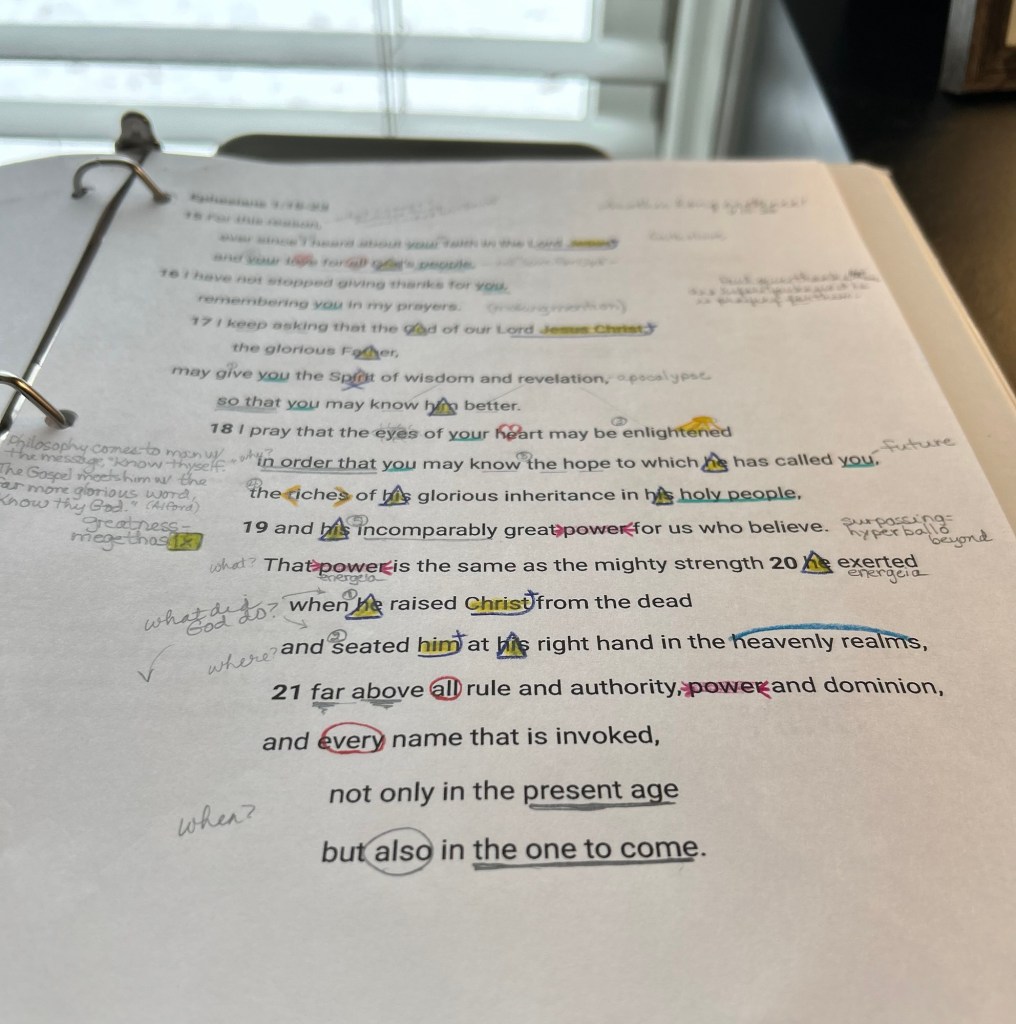 Ephesians 1:15-23
15 For this reason,
ever since I heard about your faith in the Lord Jesus
and your love for all God's people,
16 I have not stopped giving thanks for you,
remembering you in my prayers. (making mention)
17 I keep asking that the God of our Lord Jesus Christ,
the glorious Father,
may give you the Spirit of wisdom and revelation, apocalypse
so that you may know him better.
18 I pray that the eyes of your heart may be enlightened
why? in order that you may know the hope to which he has called you, future
the riches of his glorious inheritance in his holy people,
19 and his incomparably great power for us who believe.
surpassing=
hyperballo
beyond
Philosophy comes to man w/
the message, "know thyself."
The Gospel meets him w/ the
far more glorious word,
"Know thy God." (Alford)
greatness-
megethos 1x
what? That power is the same as the mighty strength 20 he exerted
energeia energeia
what did God do? when he raised Christ from the dead
where? and seated him at his right hand in the heavenly realms,
21 far above all rule and authority, power and dominion,
and every name that is invoked,
not only in the present age
when?
but also in the one to come.